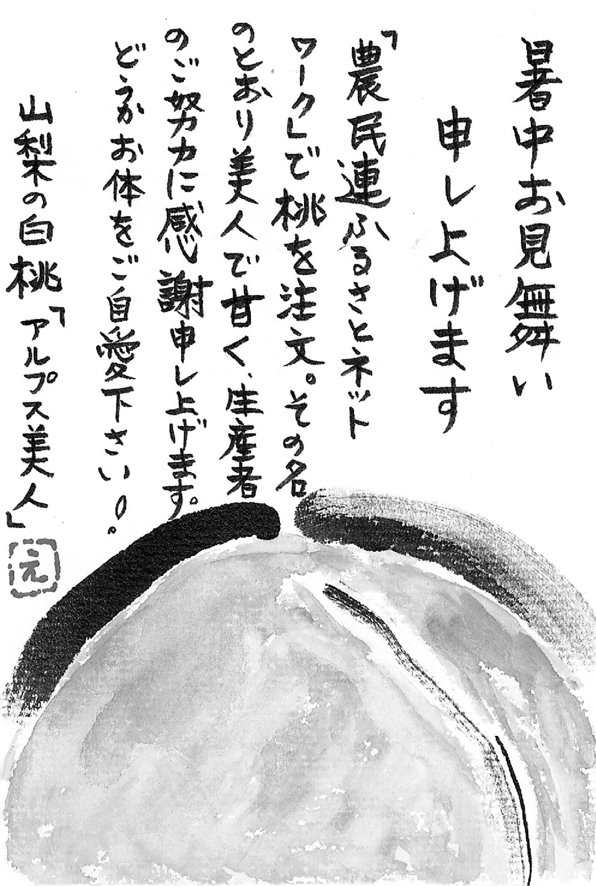 暑中お見舞い
申し上げます
「農民連ふるさとネット
ワーク」で桃を注文。その名
のとおり美人で甘く、生産者
のご努力に感謝申し上げます。
どうかお体をご自愛下さい！。
山梨の白桃「アルプス美人」
え